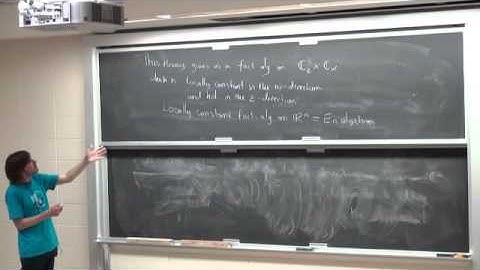 This theory gives us a fact. alg on ℂ_z × ℂ_w
which is locally constant in the w-direction
and hol in the z-direction
Locally constant fact. alg on ℝⁿ = Eₙ algebra